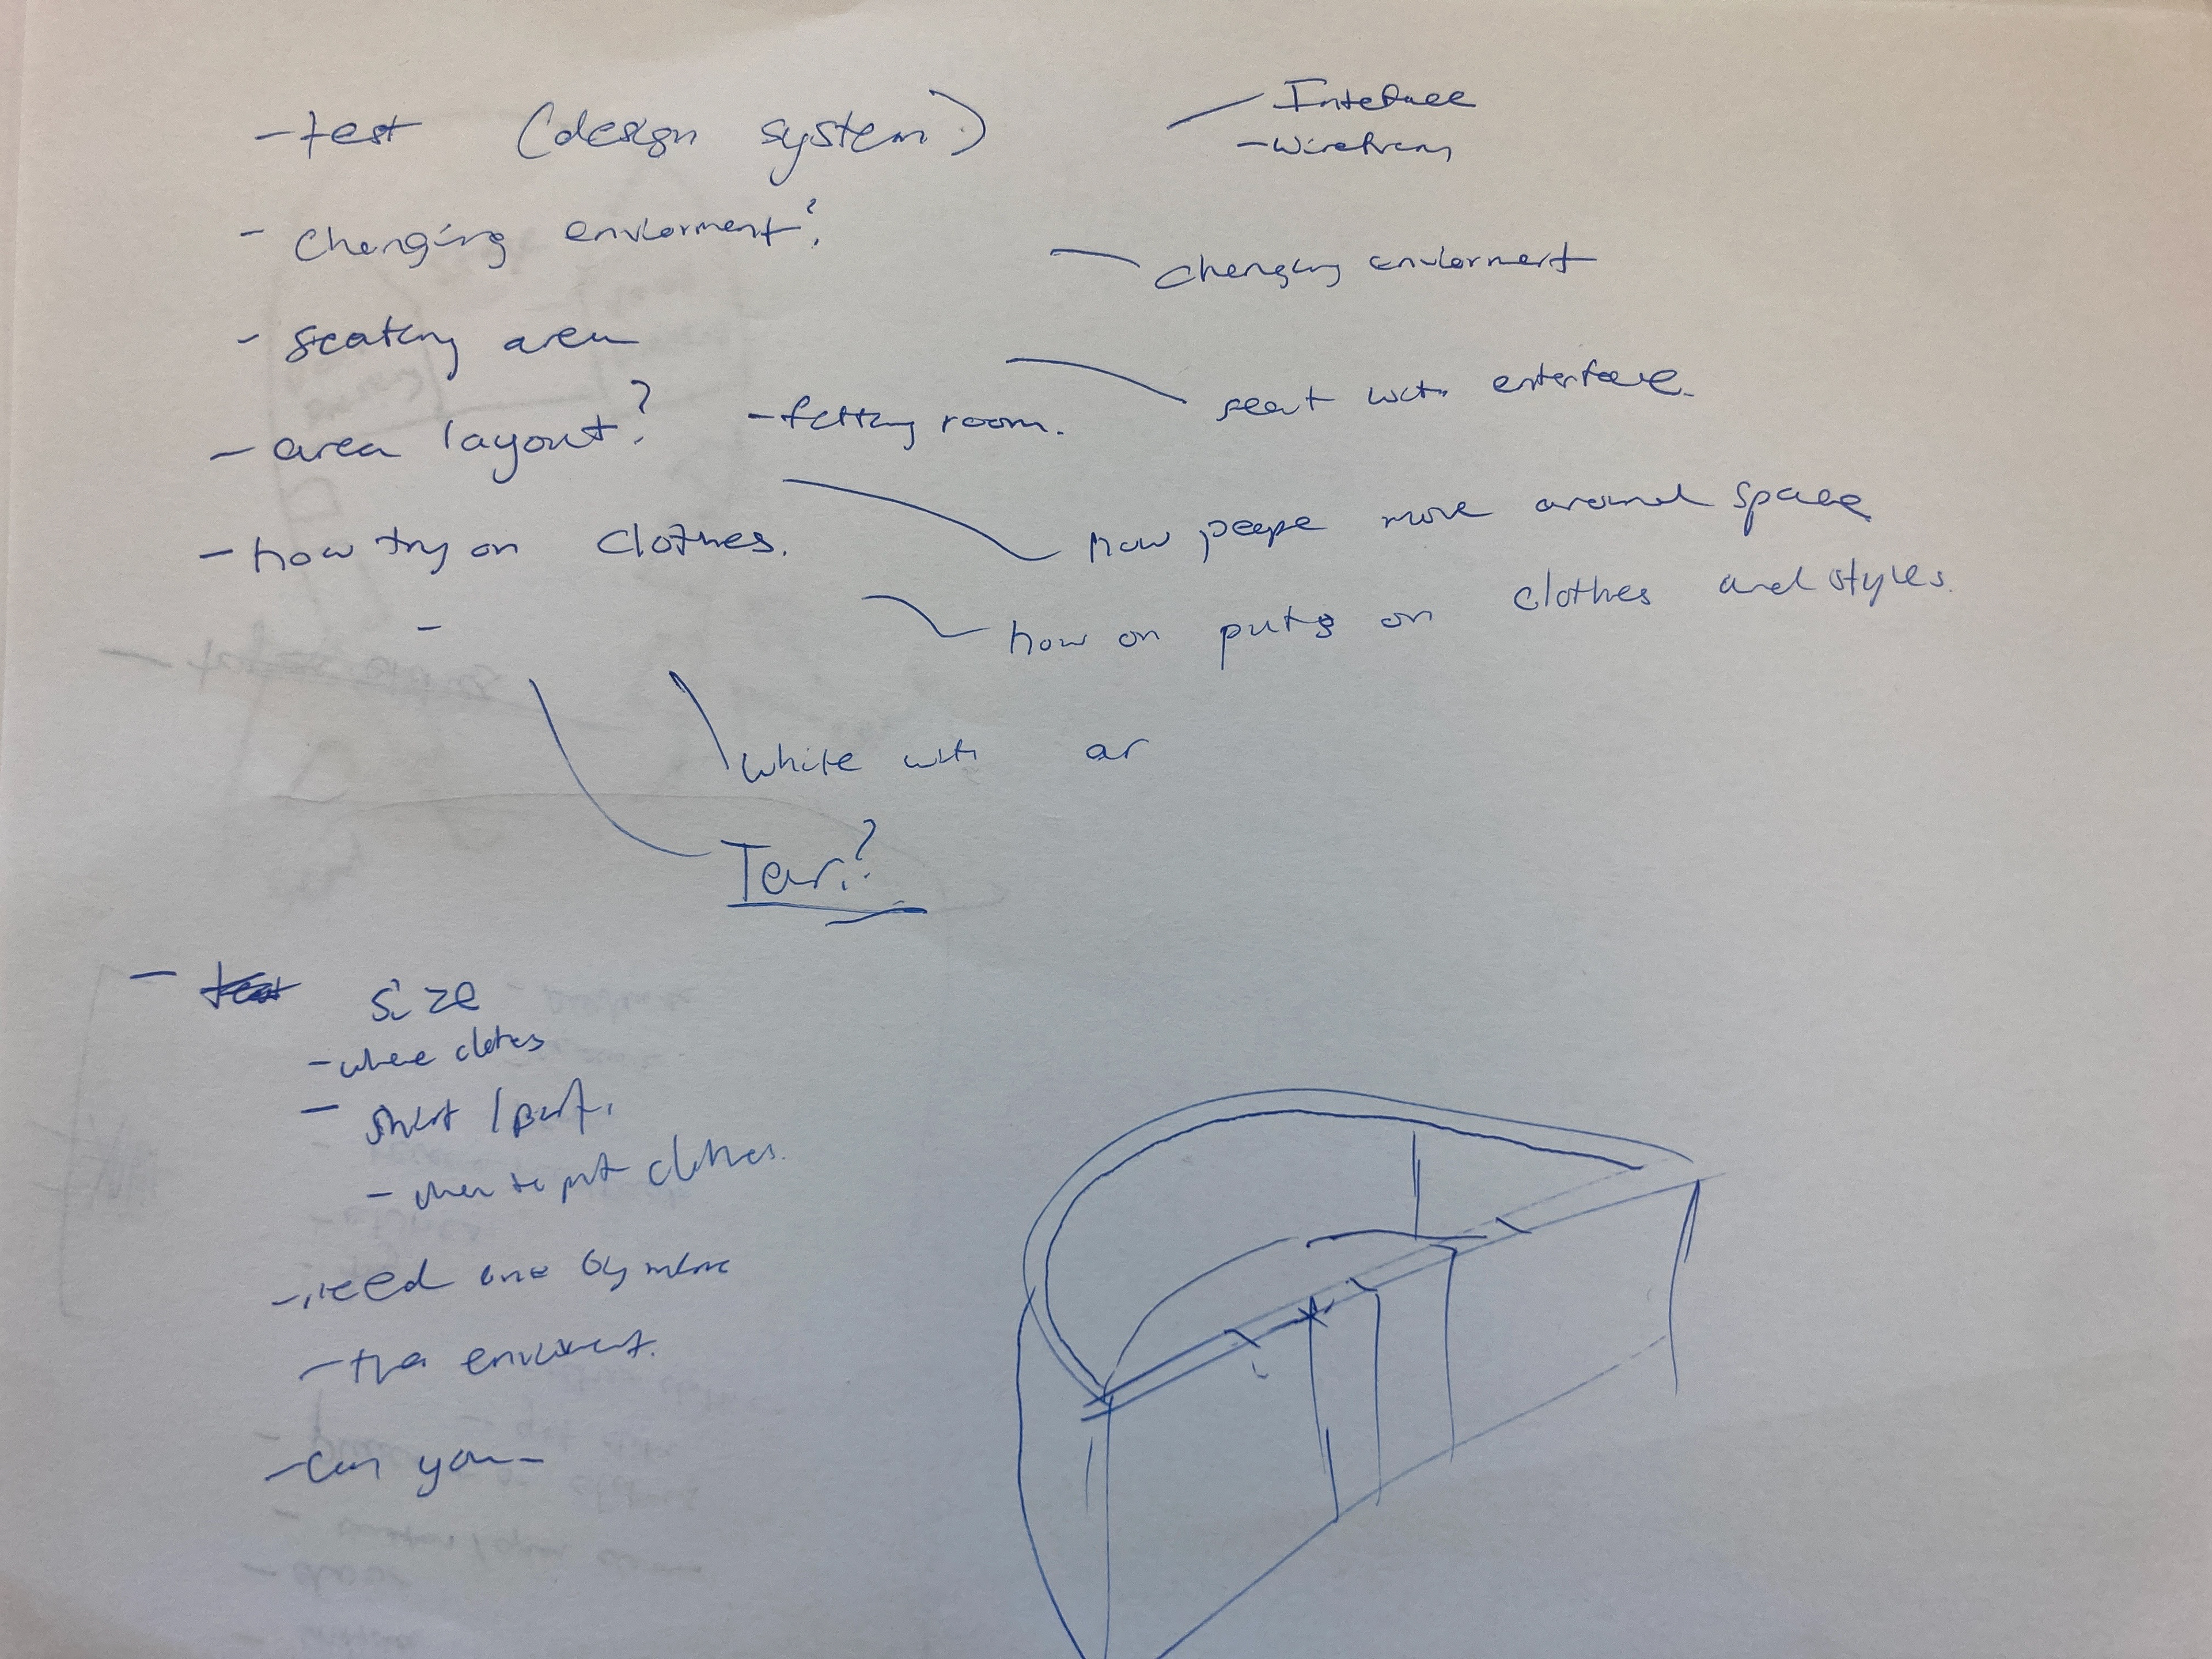 - test (design system)
- Interface
- wirefram
- changing enviorment?
- changing enviorment
- seating area
seat with enterface.
- area layout?
- fitting room.
- how try on clothes.
how peope move around space
how on puts on clothes and styles.
-
white with ar
Tear?
- size
- where clothes
- shirt /
- where to put clothes.
- need one by
- the
- can you -